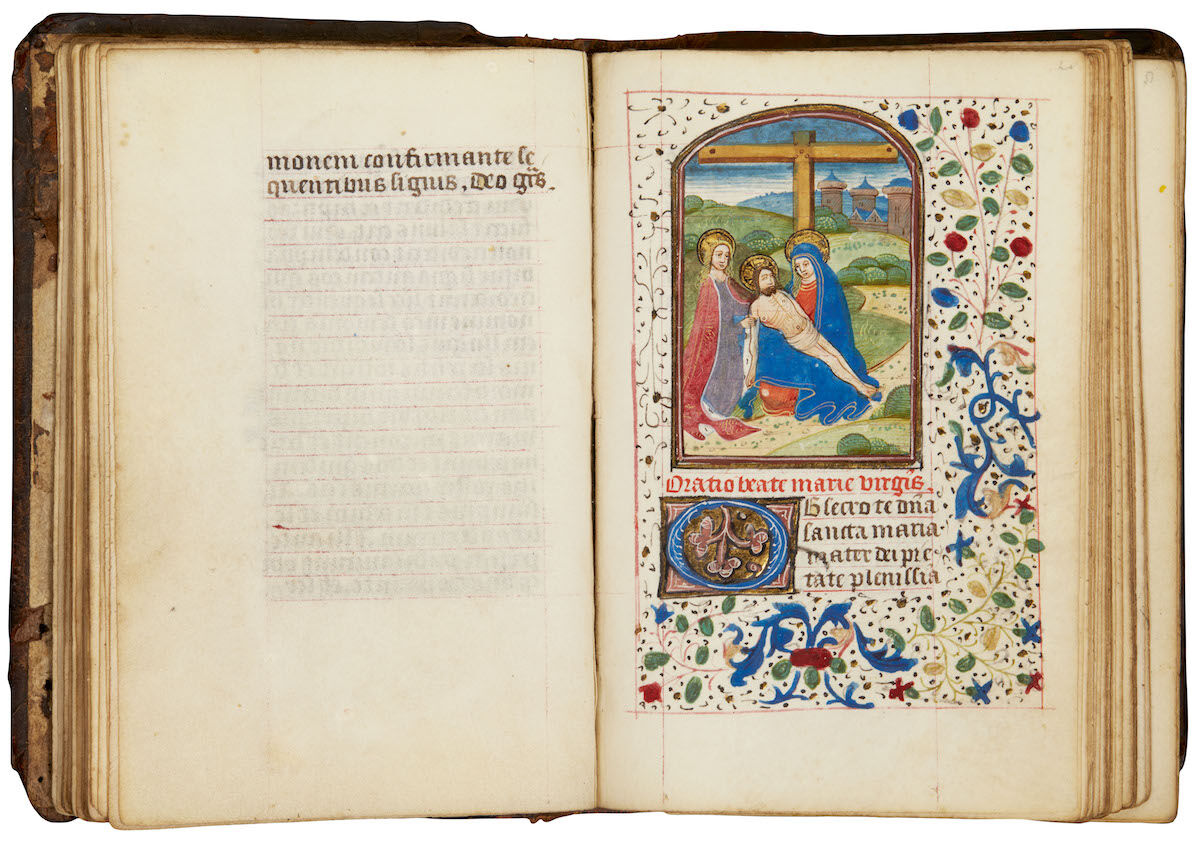 monem confirmante se
quentibus signis. Deo grīs.
Oratio beate marie virgīs.
Obsecro te dn̄a
sancta maria
mater dei pie
tate plenissīa